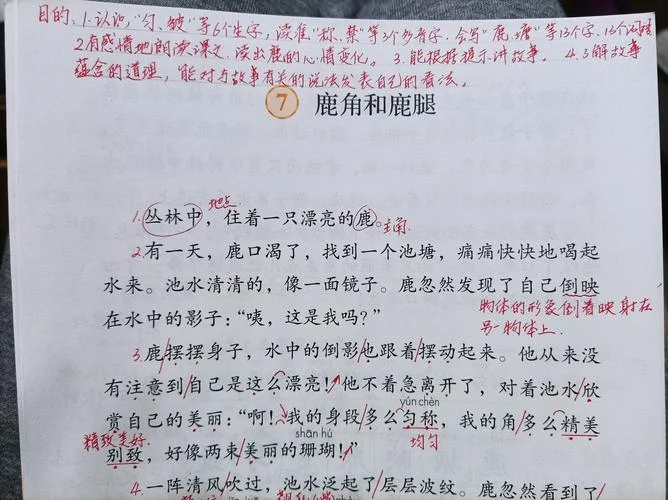 目的:1.认识“匀、皱”等6个生字,读准“称、禁”等3个多音字,会写“鹿、塘”等13个字、13个词语
2有感情地朗读课文,读出鹿的心情变化。3.能根据提示讲故事。4.了解故事
蕴含的道理,能对与故事有关的说法发表自己的看法。
7 鹿角和鹿腿
地点
1.丛林中,住着一只漂亮的鹿。主角
2.有一天,鹿口渴了,找到一个池塘,痛痛快快地喝起
水来。池水清清的,像一面镜子。鹿忽然发现了自己倒映
物体的形象倒着映射在
在水中的影子:“咦,这是我吗?”
另一物体上.
3.鹿摆摆身子,水中的倒影也跟着摆动起来。他从来没
有注意到自己是这么漂亮!他不着急离开了,对着池水欣
yún chèn
赏自己的美丽:“啊!我的身段多么匀称,我的角多么精美
精致美好
shān hú
均匀
别致,好像两束美丽的珊瑚!”
4.一阵清风吹过,池水泛起了层层波纹。鹿忽然看到了